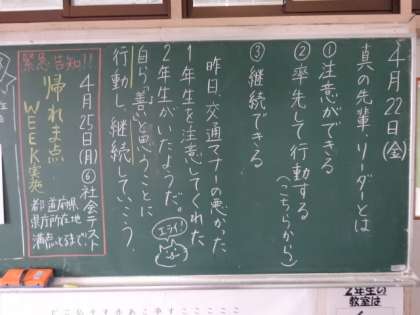 4月22日(金)
真の先輩・リーダーとは
①注意ができる
②率先して行動する(こちらから)
③継続できる
昨日、交通マナーの悪かった
1年生を注意してくれた
2年生がいたようだ。
エライ!
自ら「善い」と思うことに
行動し、継続していこう。
緊急告知!!
4月25日(月)⑥社会テスト
帰れま点
WEEK実施
都道府県
県庁所在地
満点とるまで、
2年生の
教室は